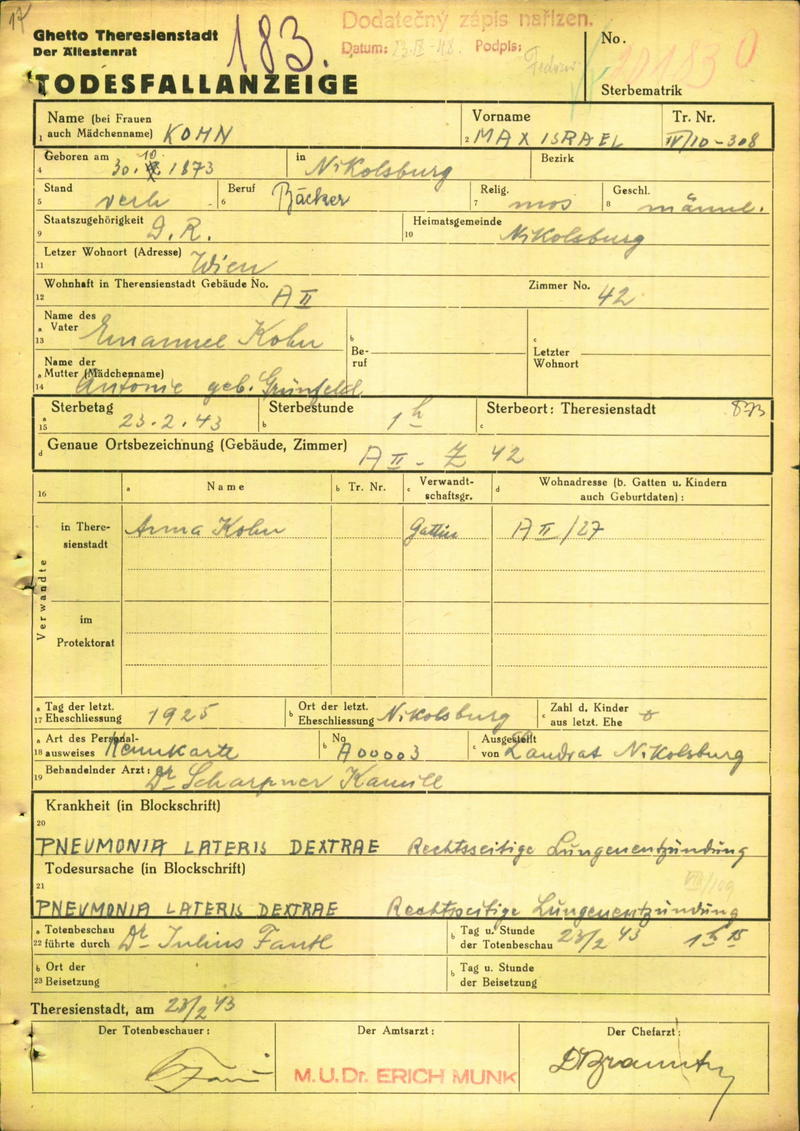 17
Ghetto Theresienstadt
Der Ältestenrat
183.
Dodatečný zápis nařízen.
Datum: Podpis:
TODESFALLANZEIGE
No.
20183
Sterbematrik
Name (bei Frauen
1 auch Mädchenname) KOHN
Vorname
2 MAX ISRAEL
Tr. Nr.
IV/10-308
Geboren am
4 30. 10 1873
in Nikolsburg
Bezirk
Stand
5 verh
Beruf
6 Bäcker
Relig.
7 mos
Geschl.
8 männl.
Staatszugehörigkeit
9 D.R.
Heimatsgemeinde
10 Nikolsburg
Letzer Wohnort (Adresse)
11 Wien
Wohnhaft in Theresienstadt Gebäude No.
12 A II
Zimmer No. 42
Name des
a Vater
13 Emanuel Kohn
b
Be-
ruf
c
Letzter
Wohnort
Name der
a Mutter (Mädchenname)
14 Antonie geb. Grünfeld
Sterbetag
a
15 23.2.43
Sterbestunde
b 1 h
Sterbeort: Theresienstadt
c
873
Genaue Ortsbezeichnung (Gebäude, Zimmer)
d A II - Z 42
16
a Name
b Tr. Nr.
c Verwandt-
schaftsgr.
d Wohnadresse (b. Gatten u. Kindern
auch Geburtdaten):
Verwandte
in There-
sienstadt
Anna Kohn
Gattin
A II/27
im
Protektorat
a Tag der letzt.
17 Eheschliessung 1925
b Ort der letzt.
Eheschliessung Nikolsburg
c Zahl d. Kinder
aus letzt. Ehe 0
a Art des Personal-
18 ausweises Kennkarte
b No A00003
c Ausgestellt
von Landrat Nikolsburg
Behandelnder Arzt:
19 Dr. Scharpner Kamill
Krankheit (in Blockschrift)
20
PNEUMONIA LATERIS DEXTRAE Rechtsseitige Lungenentzündung
Todesursache (in Blockschrift)
21
PNEUMONIA LATERIS DEXTRAE Rechtsseitige Lungenentzündung
a Totenbeschau
22 führte durch Dr Julius Fantl
b Tag u. Stunde
der Totenbeschau 23/2 43 1 h 15
b Ort der
23 Beisetzung
b Tag u. Stunde
der Beisetzung
Theresienstadt, am 23/2 43
Der Totenbeschauer:
Der Amtsarzt:
M.U.Dr. ERICH MUNK
Der Chefarzt: